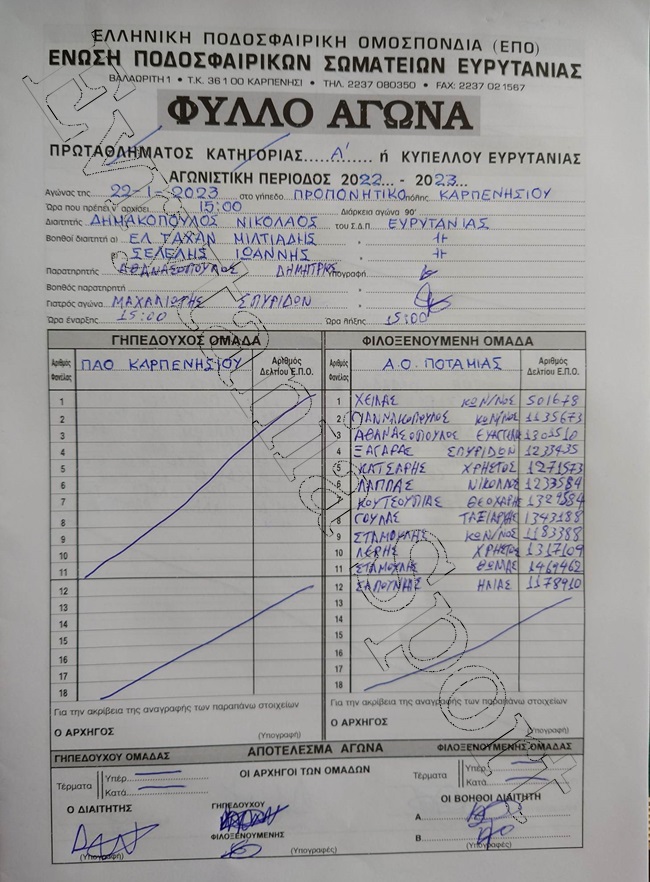 ΕΛΛΗΝΙΚΗ ΠΟΔΟΣΦΑΙΡΙΚΗ ΟΜΟΣΠΟΝΔΙΑ (ΕΠΟ)
ΕΝΩΣΗ ΠΟΔΟΣΦΑΙΡΙΚΩΝ ΣΩΜΑΤΕΙΩΝ ΕΥΡΥΤΑΝΙΑΣ
ΒΑΛΑΩΡΙΤΗ 1 • Τ.Κ. 361 00 ΚΑΡΠΕΝΗΣΙ • ΤΗΛ. 2237 080350 • FAX: 2237 021567
ΦΥΛΛΟ ΑΓΩΝΑ
ΠΡΩΤΑΘΛΗΜΑΤΟΣ ΚΑΤΗΓΟΡΙΑΣ.....Α'...... ή ΚΥΠΕΛΛΟΥ ΕΥΡΥΤΑΝΙΑΣ
ΑΓΩΝΙΣΤΙΚΗ ΠΕΡΙΟΔΟΣ 2022... - 2023...
Αγώνας της 22-1-2023 στο γήπεδο ΠΡΟΠΟΝΗΤΙΚΟ πόλης ΚΑΡΠΕΝΗΣΙΟΥ
Ώρα που πρέπει ν' αρχίσει 15:00 Διάρκεια αγώνα 90'
Διαιτητής ΔΗΜΑΚΟΠΟΥΛΟΣ ΝΙΚΟΛΑΟΣ του Σ.Δ.Π. ΕΥΡΥΤΑΝΙΑΣ
Βοηθοί διαιτητή α) ΕΛ ΤΑΧΑΝ ΜΙΛΤΙΑΔΗΣ " -//-
ΣΕΛΕΛΗΣ ΙΩΑΝΝΗΣ " -//-
Παρατηρητής ΑΘΑΝΑΣΟΠΟΥΛΟΣ ΔΗΜΗΤΡΙΟΣ Υπογραφή
Βοηθός παρατηρητή "
Γιατρός αγώνα ΜΑΧΑΛΙΩΤΗΣ ΣΠΥΡΙΔΩΝ "
Ώρα έναρξης 15:00 Ώρα λήξης 15:00
ΓΗΠΕΔΟΥΧΟΣ ΟΜΑΔΑ ΦΙΛΟΞΕΝΟΥΜΕΝΗ ΟΜΑΔΑ
Αριθμός Φανέλας ΠΑΟ ΚΑΡΠΕΝΗΣΙΟΥ Αριθμός Δελτίου Ε.Π.Ο. Αριθμός Φανέλας Α.Ο. ΠΟΤΑΜΙΑΣ Αριθμός Δελτίου Ε.Π.Ο.
1 1 ΧΕΙΛΑΣ ΚΩΝ/ΝΟΣ 501678
2 2 ΓΙΑΝΝΑΚΟΠΟΥΛΟΣ ΚΩΝ/ΝΟΣ 1135673
3 3 ΑΘΑΝΑΣΟΠΟΥΛΟΣ 1303510
4 4 ΞΑΓΑΡΑΣ ΣΠΥΡΙΔΩΝ 1233435
5 5 ΚΑΤΣΑΡΗΣ ΧΡΗΣΤΟΣ 1271573
6 6 ΛΑΠΠΑΣ ΝΙΚΟΛΑΟΣ 1233584
7 7 ΚΟΥΤΣΟΥΠΙΑΣ ΘΕΟΧΑΡΗΣ 1329584
8 8 ΓΟΥΛΑΣ ΤΑΞΙΑΡΧΗΣ 1343188
9 9 ΣΤΑΜΟΥΛΗΣ ΚΩΝ/ΝΟΣ 1183388
10 10 ΛΕΡΗΣ ΧΡΗΣΤΟΣ 1317109
11 11 ΣΤΑΜΟΥΛΗΣ ΘΩΜΑΣ 1469462
12 12 ΣΑΠΟΥΝΑΣ ΗΛΙΑΣ 1178910
13 13
14 14
15 15
16 16
17 17
18 18
Για την ακρίβεια της αναγραφής των παραπάνω στοιχείων Για την ακρίβεια της αναγραφής των παραπάνω στοιχείων
Ο ΑΡΧΗΓΟΣ (Υπογραφή) Ο ΑΡΧΗΓΟΣ (Υπογραφή)
ΓΗΠΕΔΟΥΧΟΥ ΟΜΑΔΑΣ ΑΠΟΤΕΛΕΣΜΑ ΑΓΩΝΑ ΦΙΛΟΞΕΝΟΥΜΕΝΗΣ ΟΜΑΔΑΣ
Τέρματα Υπέρ Κατά ΟΙ ΑΡΧΗΓΟΙ ΤΩΝ ΟΜΑΔΩΝ Τέρματα Υπέρ Κατά
Ο ΔΙΑΙΤΗΤΗΣ ΓΗΠΕΔΟΥΧΟΥ ΟΙ ΒΟΗΘΟΙ ΔΙΑΙΤΗΤΗ
Α
ΦΙΛΟΞΕΝΟΥΜΕΝΗΣ Β
(Υπογραφή) (Υπογραφές) (Υπογραφές)
Evrytania Sport